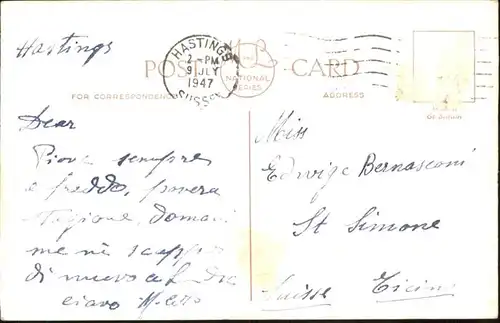 Hastings
HASTINGS
2 - PM
9 JLY
1947
SUSSEX
POST CARD
NATIONAL
SERIES
FOR CORRESPONDENCE
ADDRESS
Dear
Piove sempre
e freddo, povera
stagione, domani
me ne scappo
di nuovo a
ciavo
Miss
Edwige Bernasconi
St Simone
Suisse Ticino